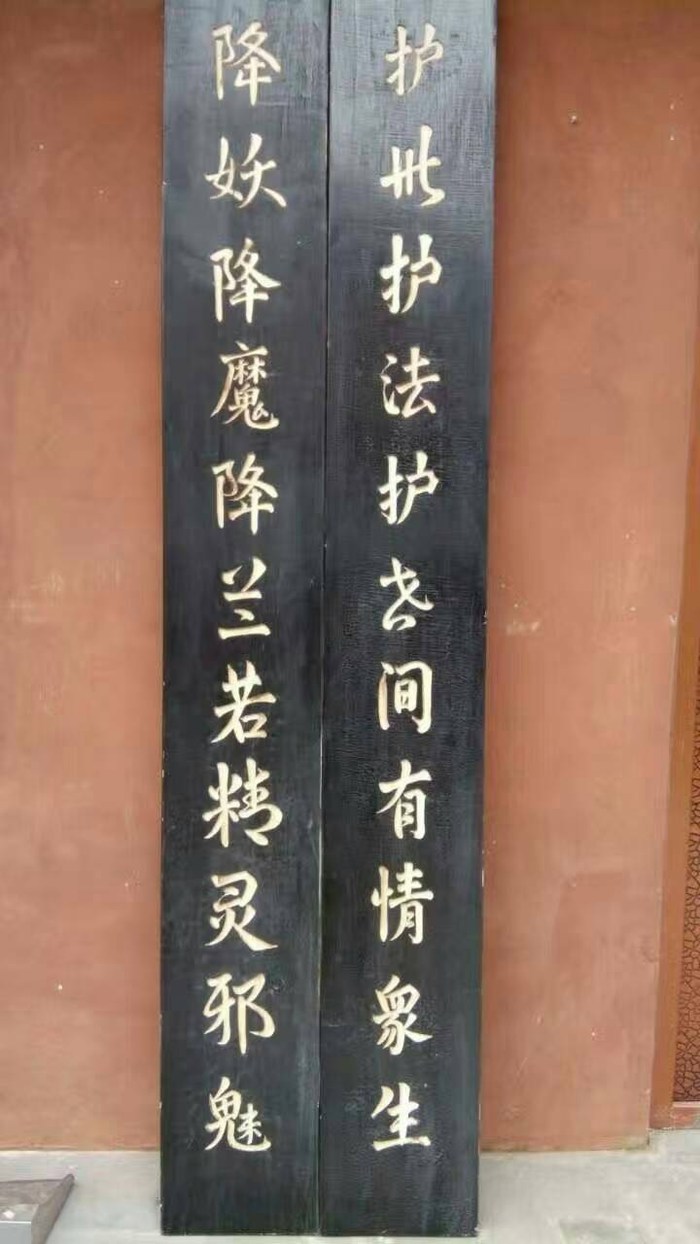 护世护法护世间有情众生
降妖降魔降兰若精灵邪魅